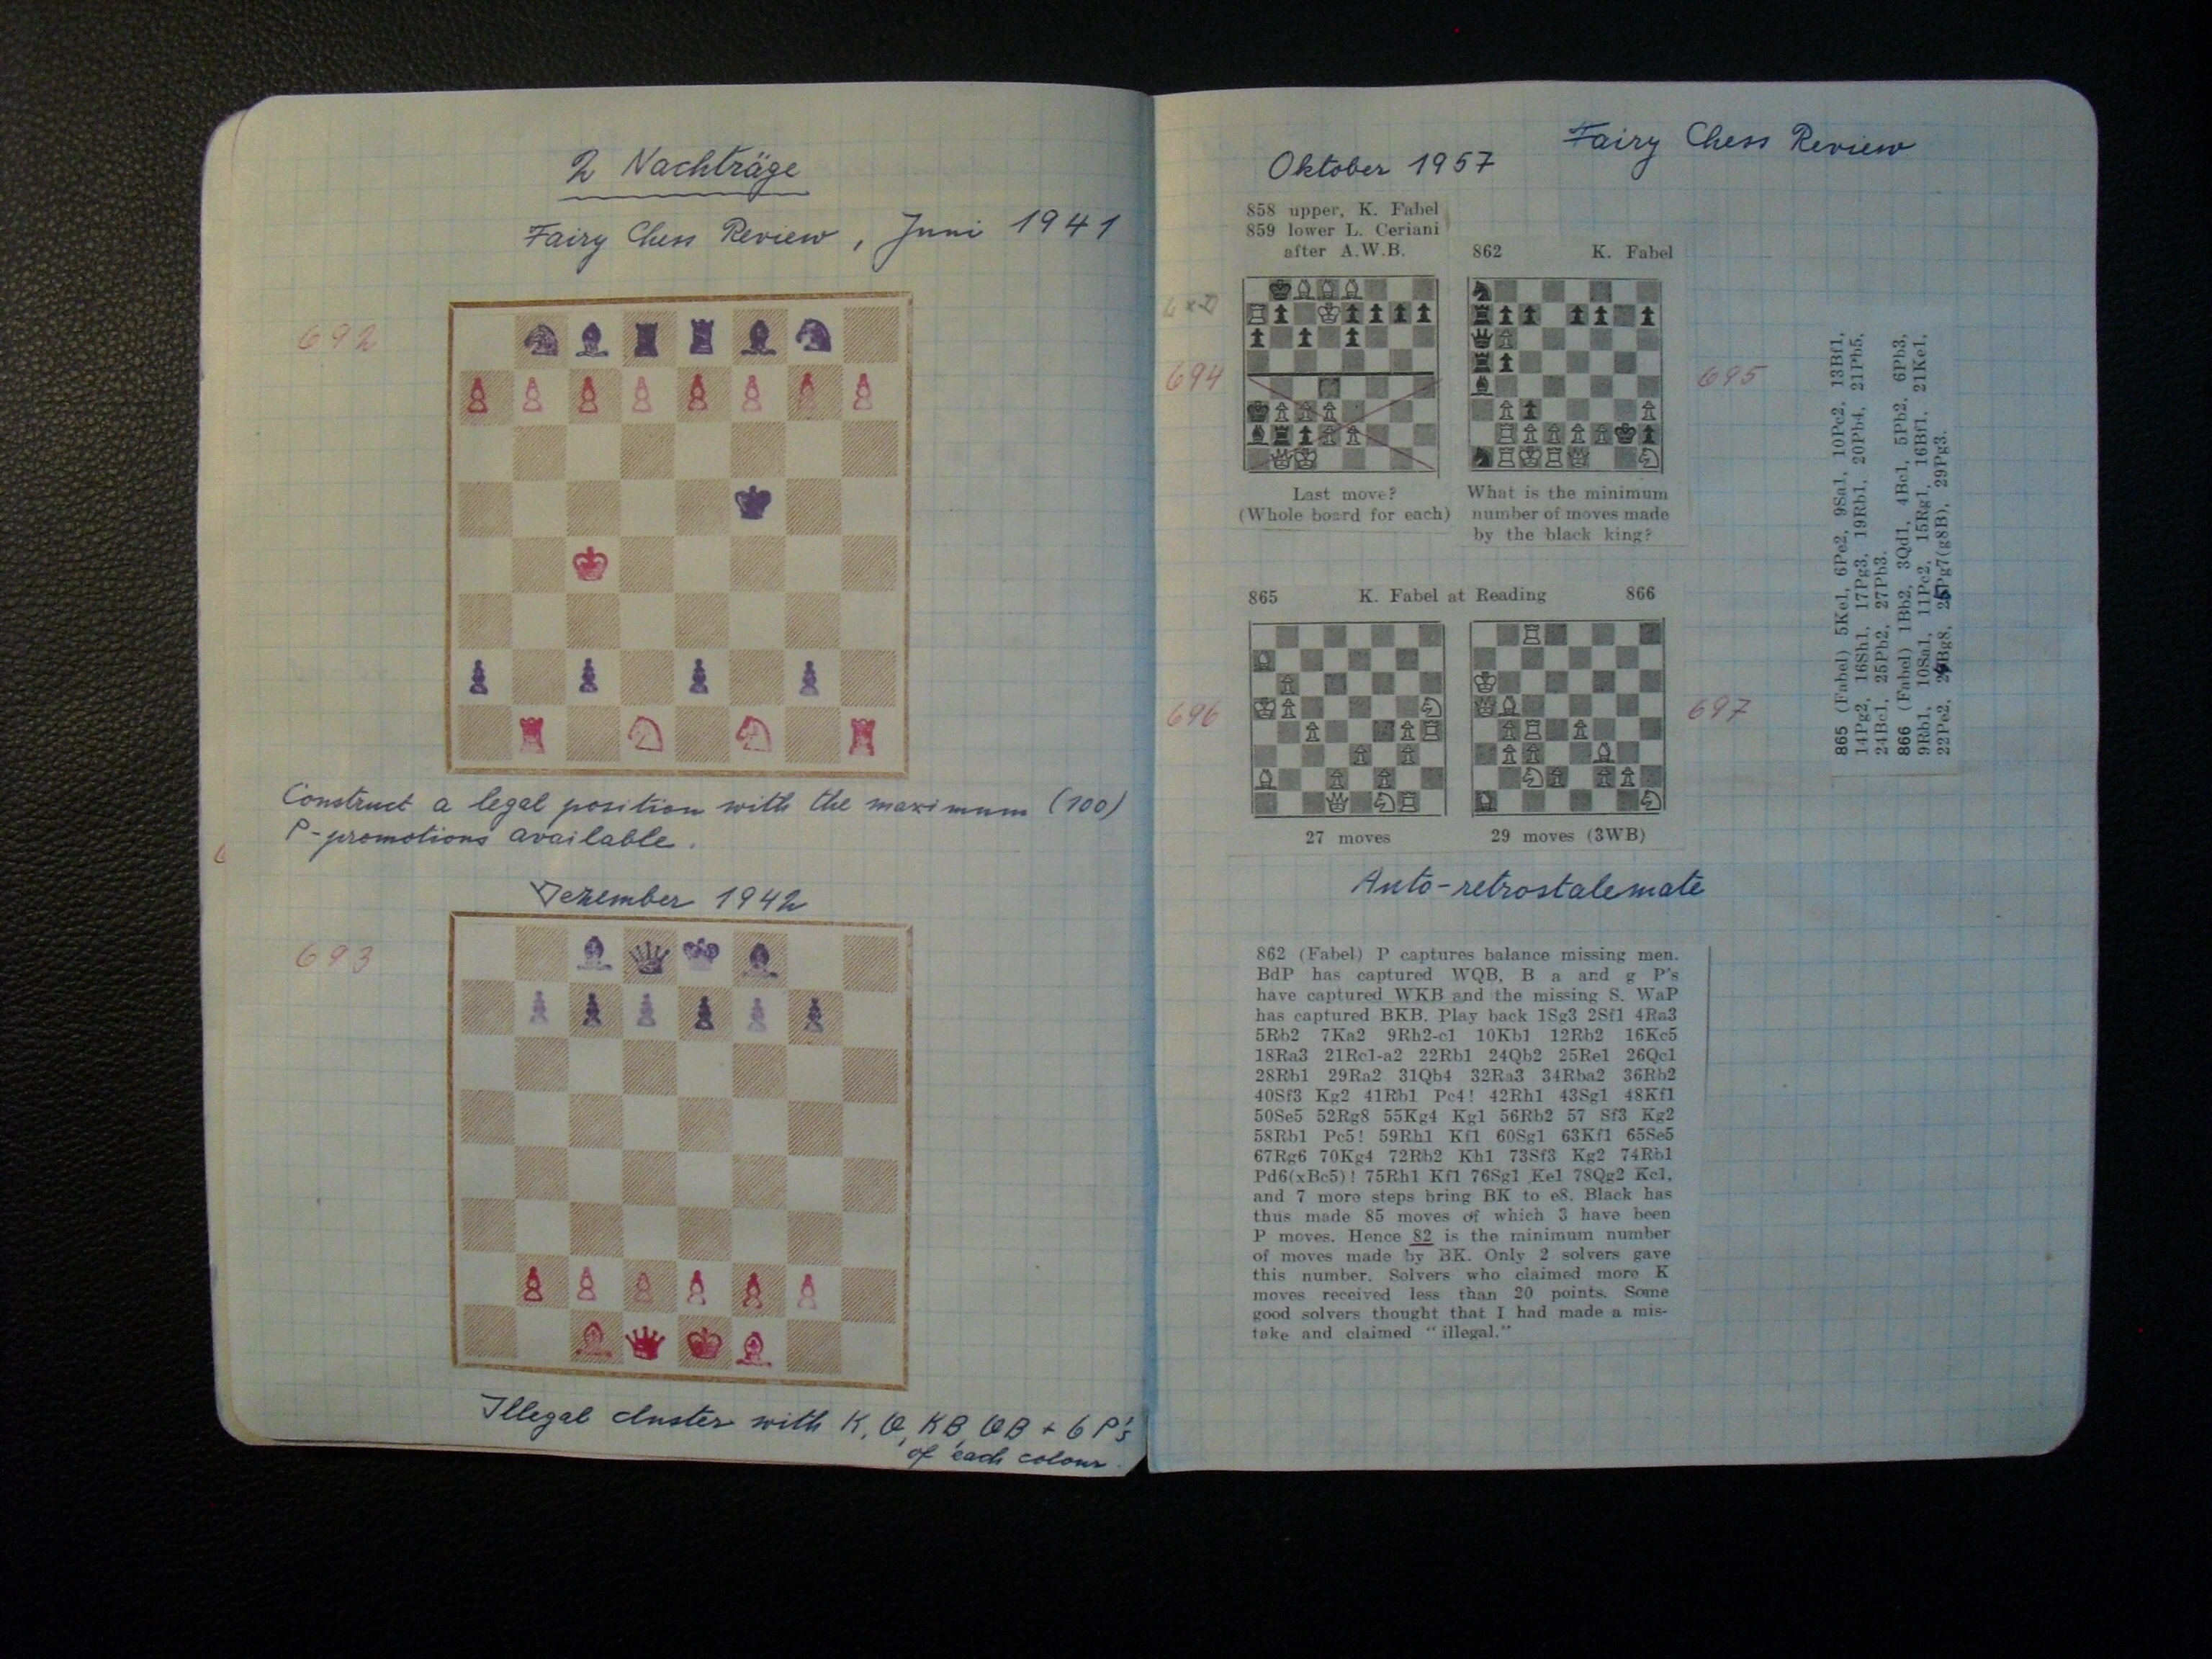 2 Nachträge
Fairy Chess Review, Juni 1941
692
Construct a legal position with the maximum (100)
P-promotions available.
Dezember 1942
693
Illegal cluster with K, Q, KB, QB + 6 P's
of each colour.
Fairy Chess Review
Oktober 1957
858 upper, K. Fabel
859 lower L. Ceriani
after A.W.B.
862 K. Fabel
694
695
Last move?
(Whole board for each)
What is the minimum
number of moves made
by the black king?
865 K. Fabel at Reading 866
696
697
27 moves
29 moves (3WB)
Auto-retrostalemate
862 (Fabel) P captures balance missing men.
BdP has captured WQB, B a and g P's
have captured WKB and the missing S. WaP
has captured BKB. Play back 1Sg3 2Sf1 4Ra3
5Rb2 7Ka2 9Rh2-c1 10Kb1 12Rb2 16Kc5
18Ra3 21Rc1-a2 22Rb1 24Qb2 25Re1 26Qc1
28Rb1 29Ra2 31Qb4 32Ra3 34Rba2 36Rb2
40Sf3 Kg2 41Rb1 Pc4! 42Rh1 43Sg1 48Kf1
50Se5 52Rg8 55Kg4 Kg1 56Rb2 57 Sf3 Kg2
58Rb1 Pc5! 59Rh1 Kf1 60Sg1 63Kf1 65Se5
67Rg6 70Kg4 72Rb2 Kh1 73Sf3 Kg2 74Rb1
Pd6(xBc5)! 75Rh1 Kf1 76Sg1 Ke1 78Qg2 Kc1,
and 7 more steps bring BK to e8. Black has
thus made 85 moves of which 3 have been
P moves. Hence 82 is the minimum number
of moves made by BK. Only 2 solvers gave
this number. Solvers who claimed more K
moves received less than 20 points. Some
good solvers thought that I had made a mis-
take and claimed "illegal."
865 (Fabel) 5Ke1, 6Pe2, 9Sa1, 10Pc2, 13Bf1,
14Pg2, 16Sh1, 17Pg3, 19Rb1, 20Pb4, 21Pb5,
24Bc1, 25Pb2, 27Pb3.
866 (Fabel) 1Bb2, 3Qd1, 4Bc1, 5Pb2, 6Pb3,
9Rb1, 10Sa1, 11Pc2, 15Rg1, 16Bf1, 21Ke1,
22Pe2, Bg8, Pg7(g8B), 29Pg3.